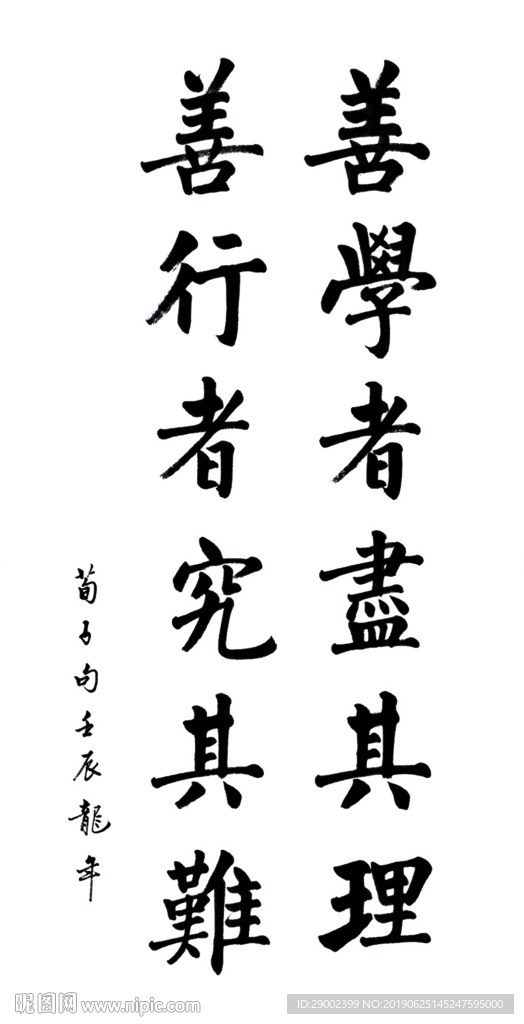 善學者盡其理
善行者究其難
荀子句壬辰龍年
昵图网 www.nipic.com
ID:29002399 NO:20190625145247595000